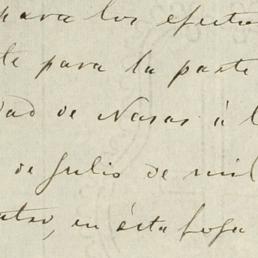 para los efectos
te para la parte
dad de Nasas á l
de Julio de mil
atro, en ésta foja